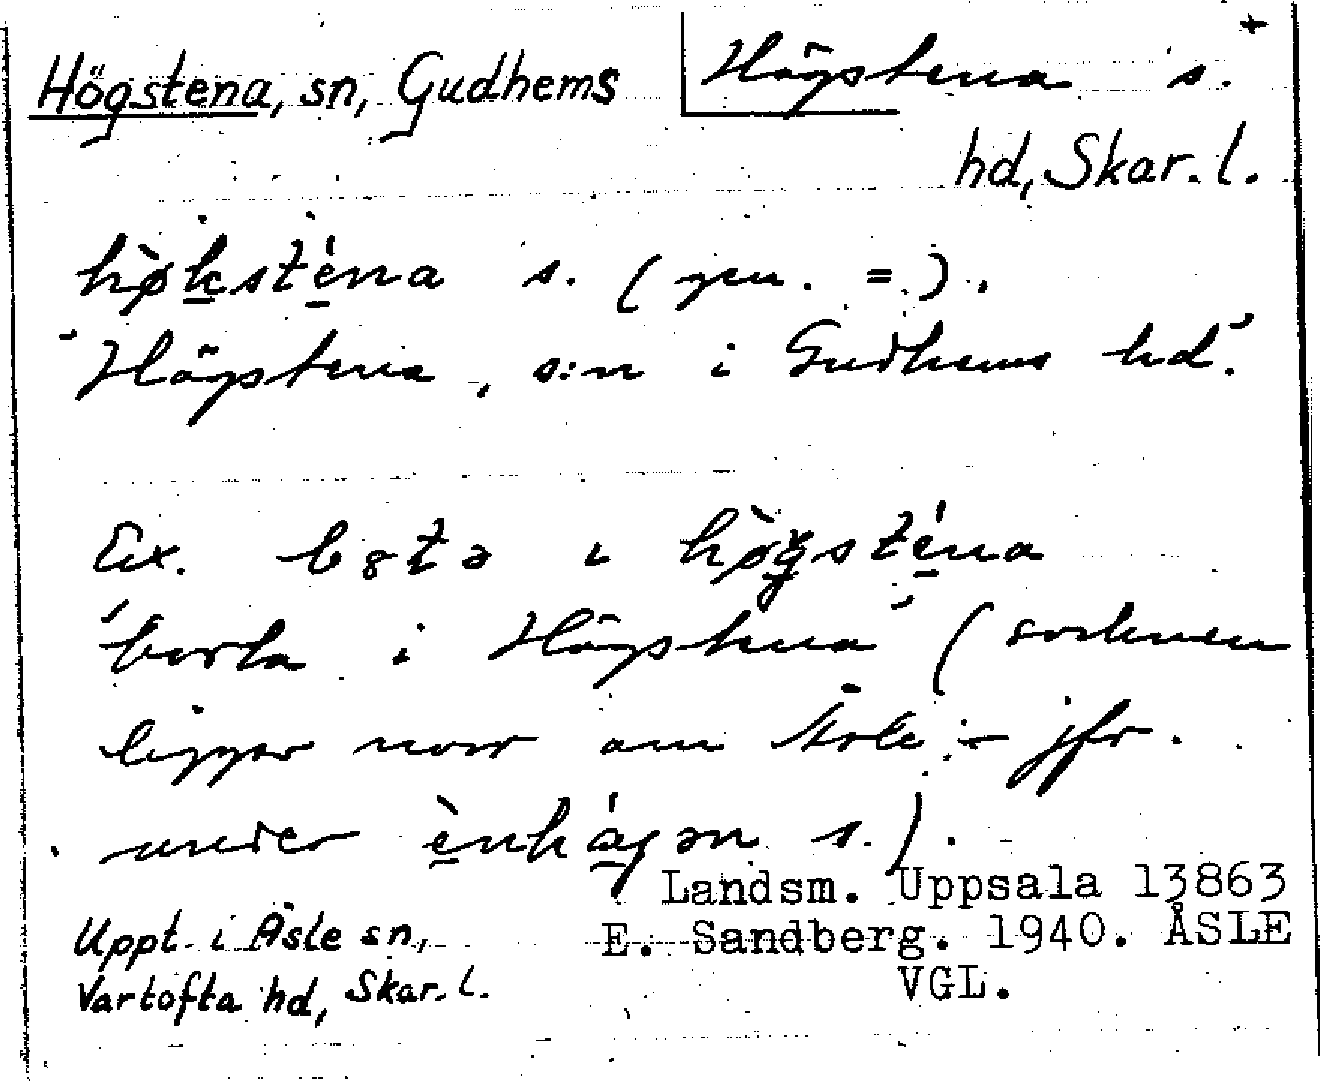 Högstena, sn, Gudhems
Högstena s. +
hd, Skar. l.
hø̀ksténa s. (gen. =).
'Högstena, s:n i Gudhems hd'.
Ex. bota i hø̀gsténa
'borta i Högstena' (socknen
ligger norr om Åsle; – jfr.
under ènhágən s.).
Landsm. Uppsala 13863
Uppt. i Åsle sn,
E. Sandberg. 1940. ÅSLE
Vartofta hd, Skar. l.
VGL.